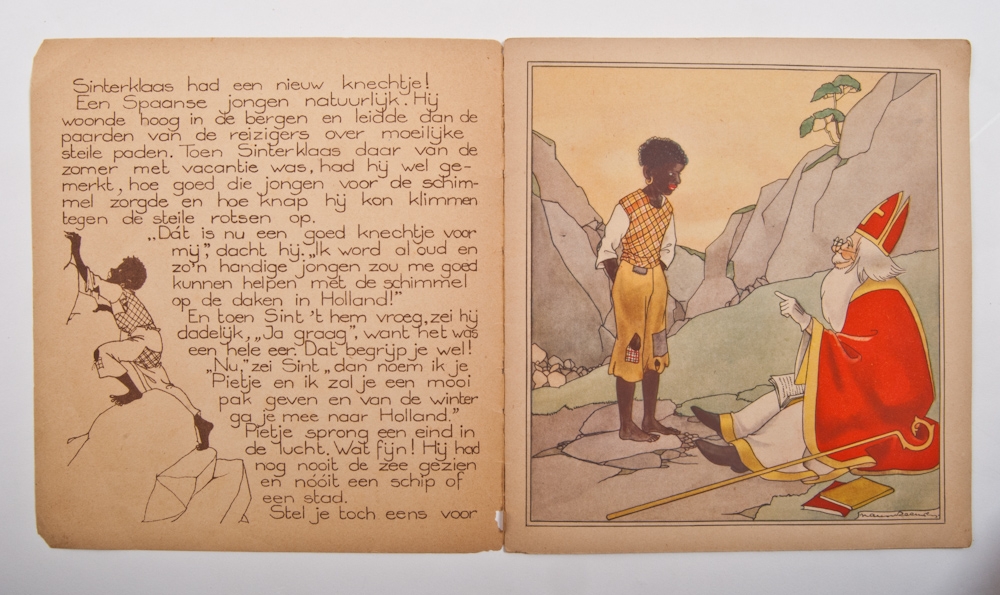 Sinterklaas had een nieuw knechtje!
Een Spaanse jongen natuurlijk. Hij
woonde hoog in de bergen en leidde dan de
paarden van de reizigers over moeilijke
steile paden. Toen Sinterklaas daar van de
zomer met vacantie was, had hij wel ge-
merkt, hoe goed die jongen voor de schim-
mel zorgde en hoe knap hij kon klimmen
tegen de steile rotsen op.
„Dát is nu een goed knechtje voor
mij”, dacht hij. „Ik word al oud en
zo'n handige jongen zou me goed
kunnen helpen met de schimmel
op de daken in Holland!"
En toen Sint 't hem vroeg, zei hij
dadelijk, „Ja graag”, want het was
een hele eer. Dat begrijp je wel!
„Nu,” zei Sint „dan noem ik je
Pietje en ik zal je een mooi
pak geven en van de winter
ga je mee naar Holland.”
Pietje sprong een eind in
de lucht. Wat fijn! Hij had
nog nooit de zee gezien
en nóóit een schip of
een stad.
Stel je toch eens voor